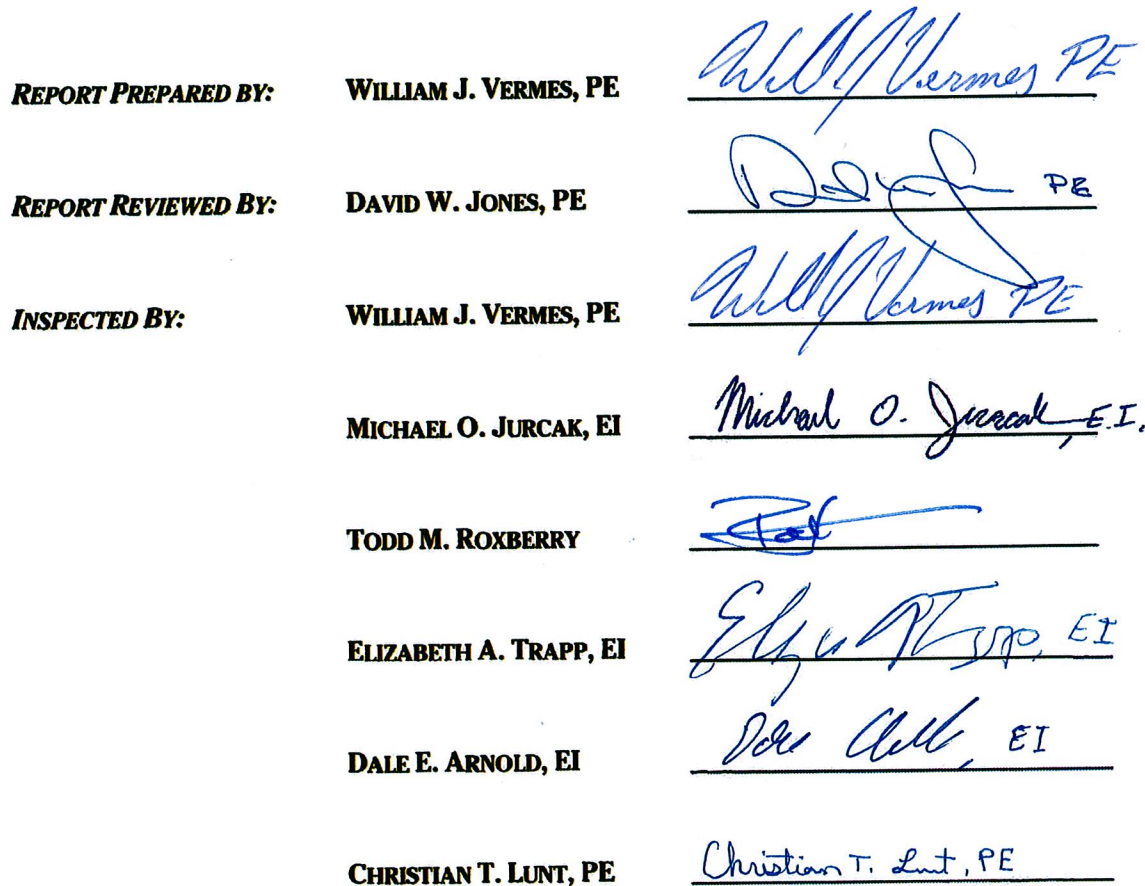 REPORT PREPARED BY: WILLIAM J. VERMES, PE Will J Vermes PE
REPORT REVIEWED BY: DAVID W. JONES, PE PE
INSPECTED BY: WILLIAM J. VERMES, PE Will J Vermes PE
MICHAEL O. JURCAK, EI Michael O. Jurcak, E.I.
TODD M. ROXBERRY
ELIZABETH A. TRAPP, EI EI
DALE E. ARNOLD, EI Dale EI
CHRISTIAN T. LUNT, PE Christian T. Lunt, PE